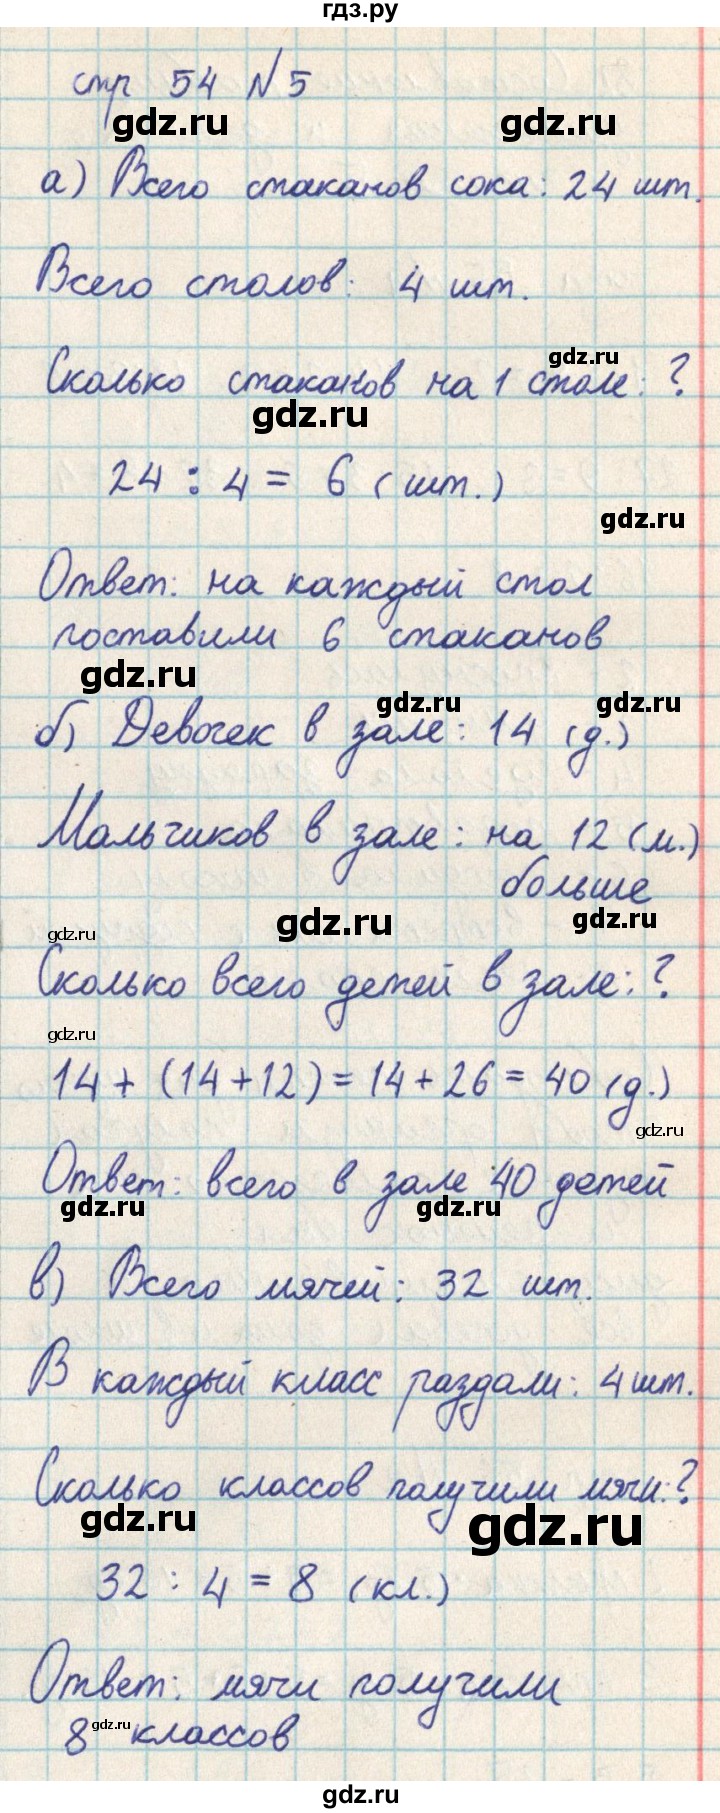 гдз.ру
стр 54 N 5
gdz.ru gdz.ru
а) Всего стаканов сока: 24 шт.
Всего столов: 4 шт.
gdz.ru
Сколько стаканов на 1 столе: ?
gdz.ru
24 : 4 = 6 (шт.)
gdz.ru
Ответ: на каждый стол
поставили 6 стаканов
gdz.ru
gdz.ru gdz.ru
б) Девочек в зале: 14 (д.)
Мальчиков в зале: на 12 (м.)
больше
gdz.ru gdz.ru
gdz.ru
Сколько всего детей в зале: ?
gdz.ru
14 + (14 + 12) = 14 + 26 = 40 (д.)
gdz.ru
Ответ: всего в зале 40 детей
gdz.ru gdz.ru
в) Всего мячей: 32 шт.
В каждый класс раздали: 4 шт.
Сколько классов получили мячи: ?
gdz.ru gdz.ru
32 : 4 = 8 (кл.)
Ответ: мячи получили
gdz.ru
8 классов
gdz.ru